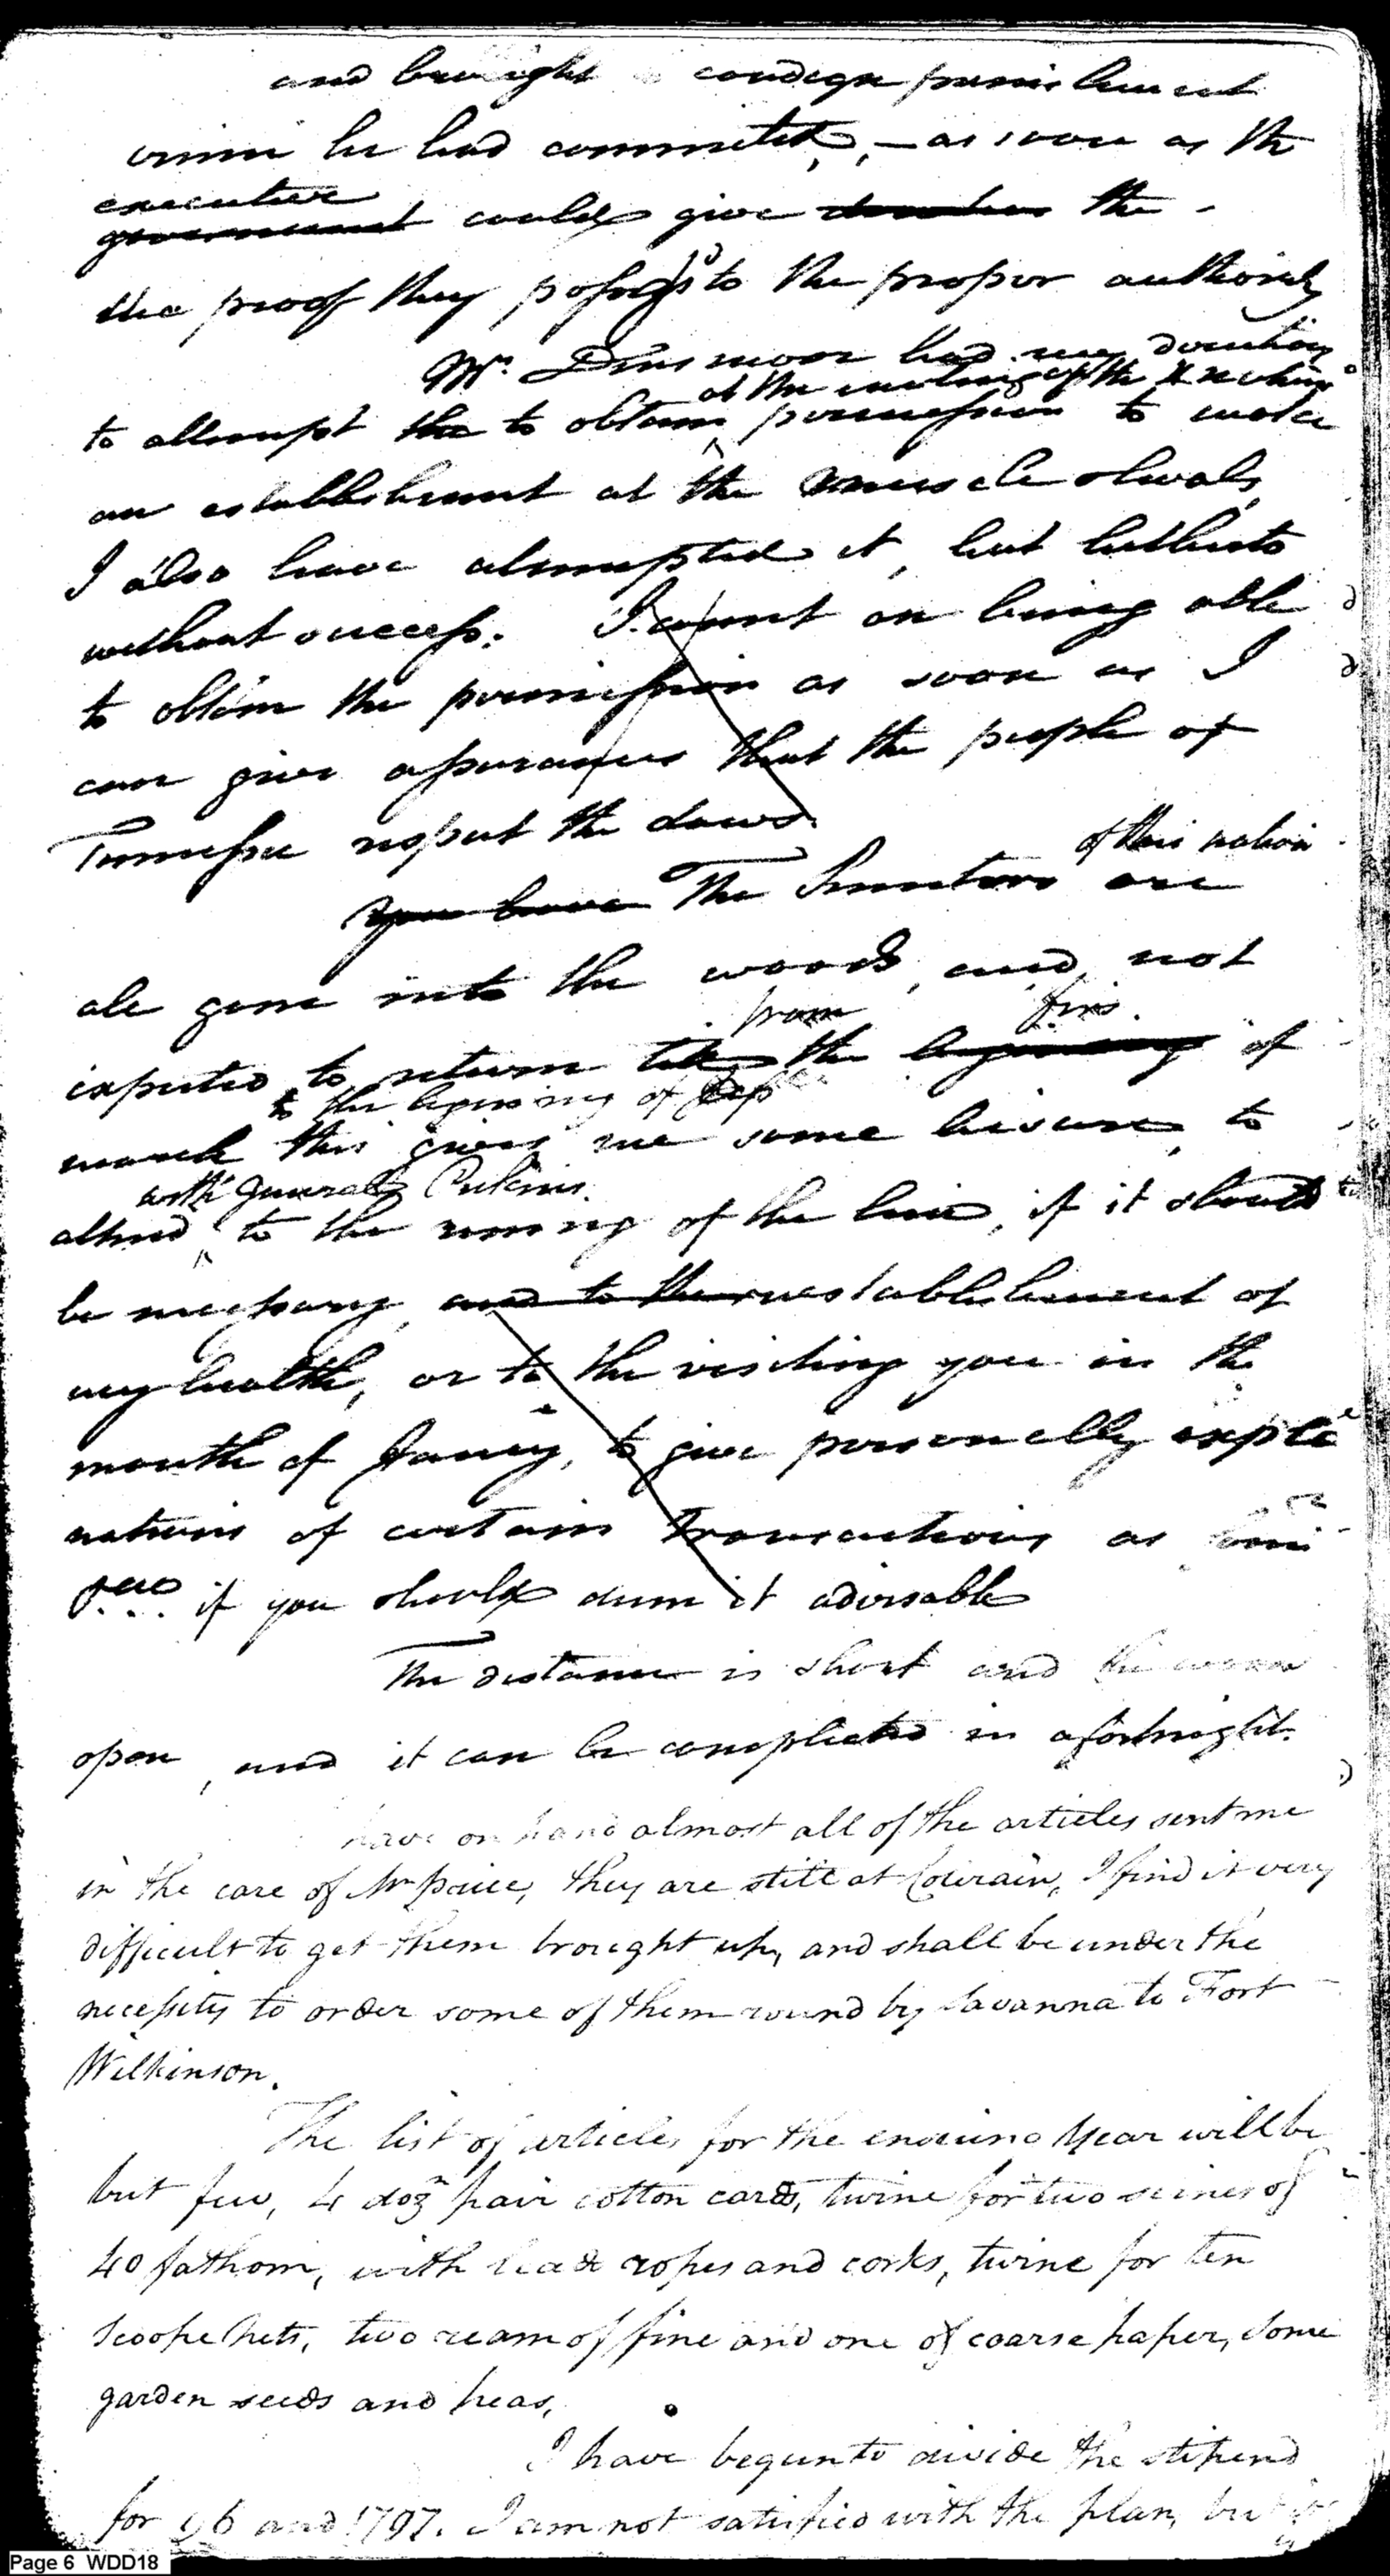 and brought condign punishment
crime he had committed, — as soon as the
executive
government could give the -
the proof they possess'd to the proper authority
Mr. Dinsmoor had my direction
at the meeting of the
to attempt the to obtain permission to make
an establishment at the muscle shoals,
I also have attempted it, but hitherto
without success. I count on being able
to obtain the permission as soon as I
can give assurances that the people of
Tennessee respect the laws.
of this nation
you have The hunters are
all gone into the woods, and not
from first
expected to return till the begining of
to the begining of
march this gives me some leisure to
with general Pickins.
attend to the runing of the line, if it should
be necessary, and to the reestablishment of
my health, or to the visiting you in the
month of Jany, to give personally expla
nations of certain transactions as
if you should deem it advisable
The distance is short and the woods
open, and it can be completed in a fortnight.
have on hand almost all of the articles sent me
in the care of Mr Price, they are still at Colerain, I find it very
difficult to get them brought up, and shall be under the
necessity to order some of them round by Savanna to Fort
Wilkinson.
The list of articles for the ensuing year will be
but few, 4 dozn pair cotton cards, twine for two seines of
40 fathom, with lead ropes and corks, twine for ten
scoope nets, two ream of fine and one of coarse paper, some
garden seeds and peas,
I have begun to divide the stipend
for 96 and 1797. I am not satisfied with the plan, but
Page 6 WDD18